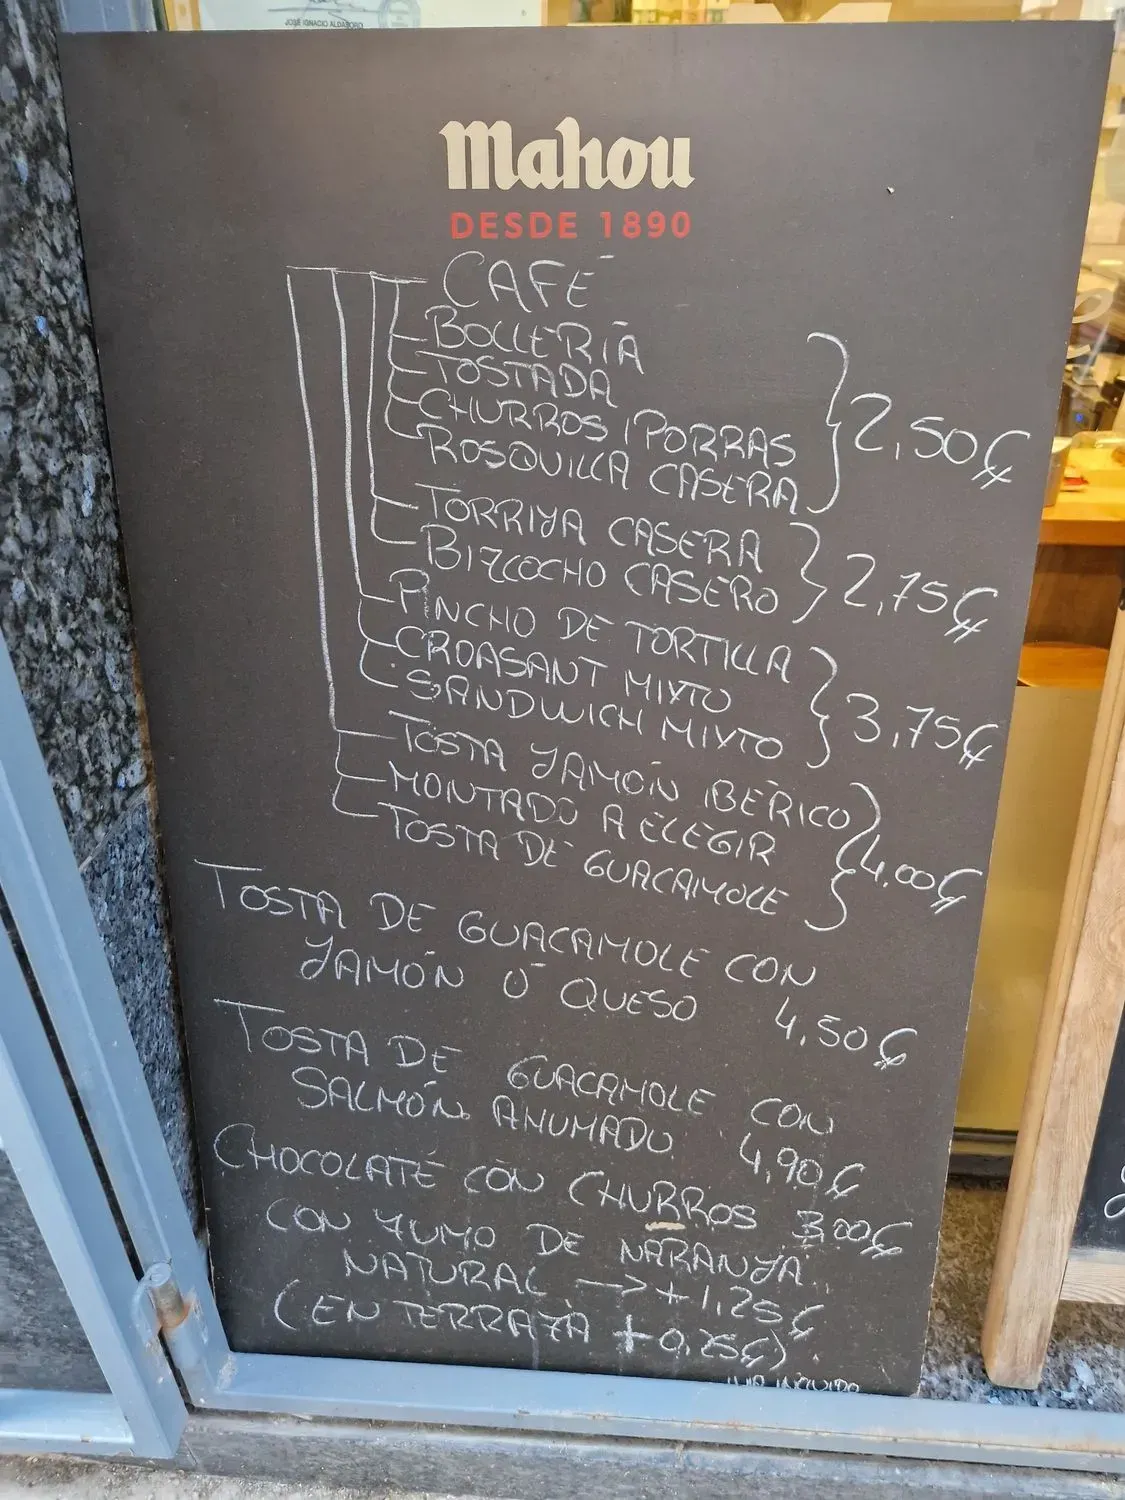 JOSÉ IGNACIO ALDASORO
Mahou
DESDE 1890
CAFÉ
BOLLERÍA
TOSTADA
CHURROS / PORRAS
ROSQUILLA CASERA
2,50€
TORRIJA CASERA
BIZCOCHO CASERO
2,75€
PINCHO DE TORTILLA
CROASANT MIXTO
SANDWICH MIXTO
3,75€
TOSTA JAMÓN IBÉRICO
MONTADO A ELEGIR
TOSTA DE GUACAMOLE
4,00€
TOSTA DE GUACAMOLE CON
JAMÓN Ó QUESO 4,50€
TOSTA DE GUACAMOLE CON
SALMÓN AHUMADO 4,90€
CHOCOLATE CON CHURROS 3,00€
CON ZUMO DE NARANJA
NATURAL → +1,25€
(EN TERRAZA +0,25€)
IVA INCLUIDO